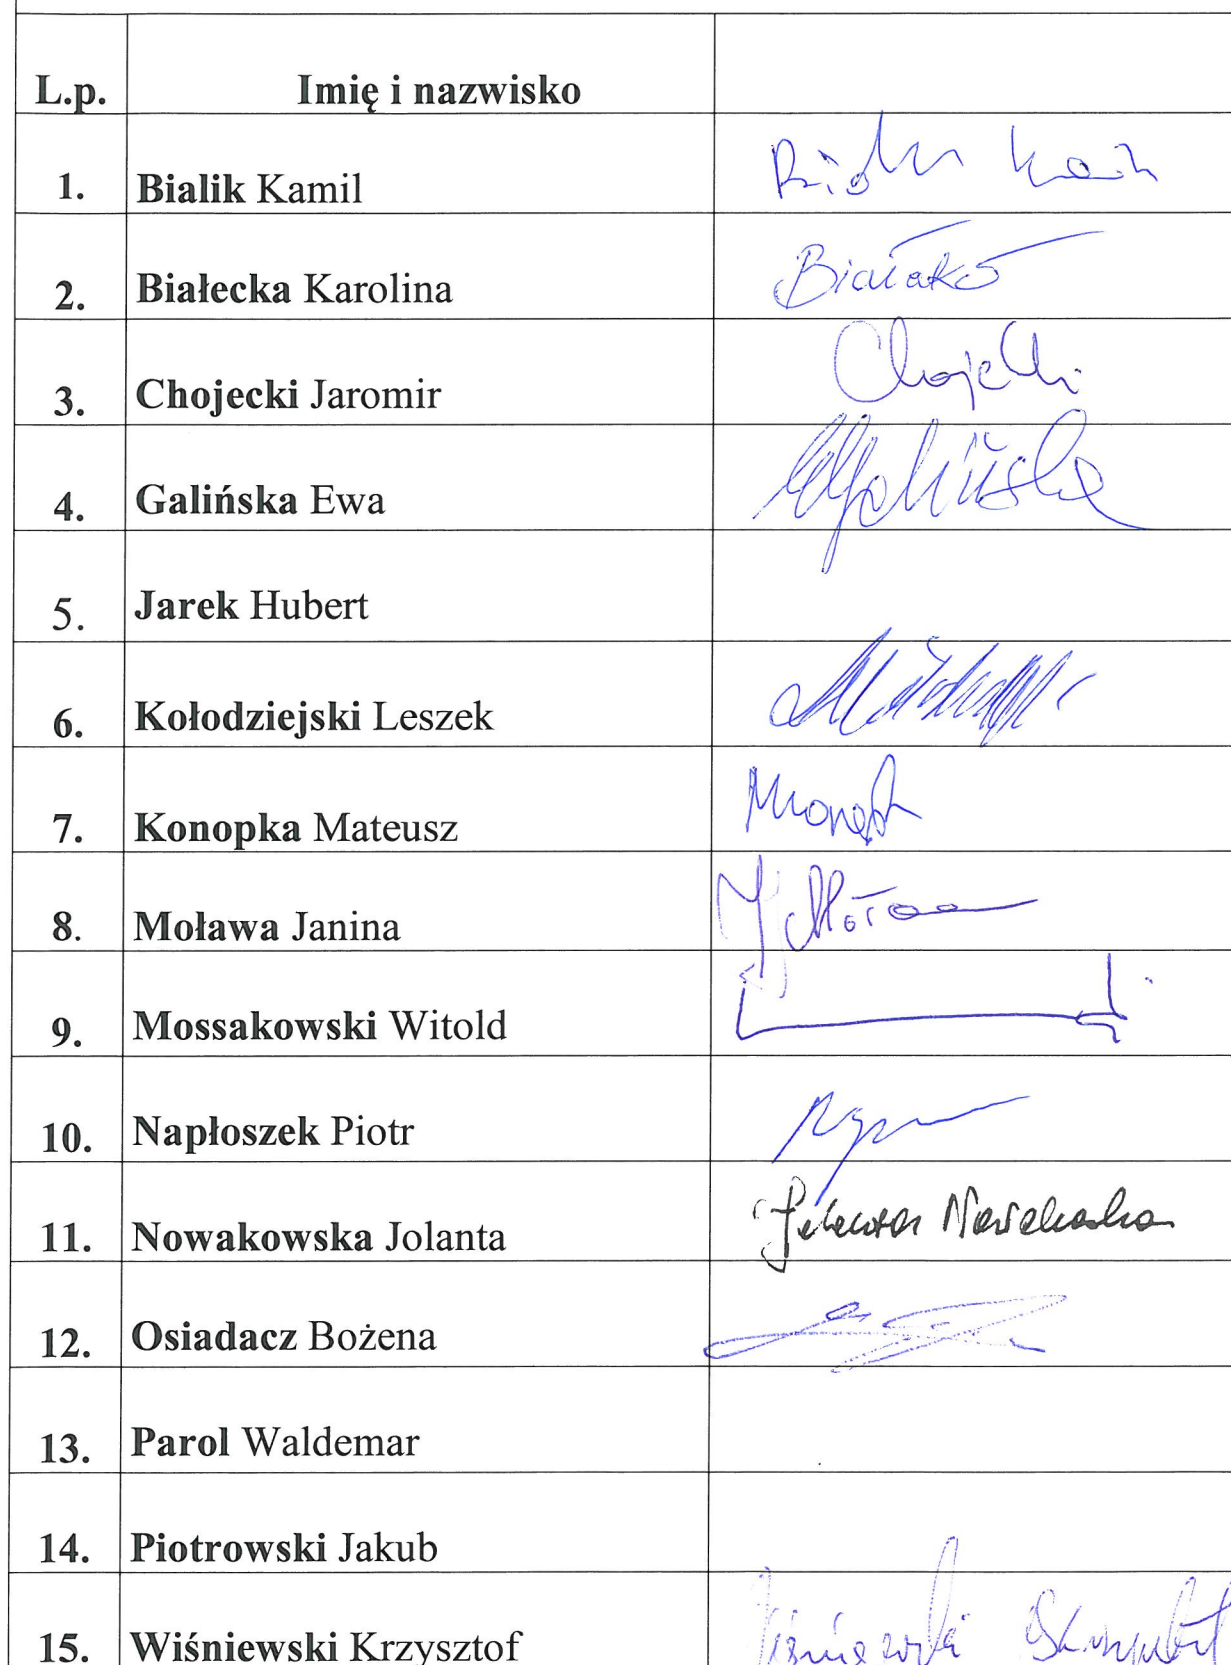 L.p. Imię i nazwisko
1. Bialik Kamil
2. Białecka Karolina
3. Chojecki Jaromir Chojecki
4. Galińska Ewa Galińska
5. Jarek Hubert
6. Kołodziejski Leszek
7. Konopka Mateusz
8. Moława Janina
9. Mossakowski Witold
10. Napłoszek Piotr
11. Nowakowska Jolanta Jolanta Nowakowska
12. Osiadacz Bożena
13. Parol Waldemar
14. Piotrowski Jakub
15. Wiśniewski Krzysztof Wiśniewski